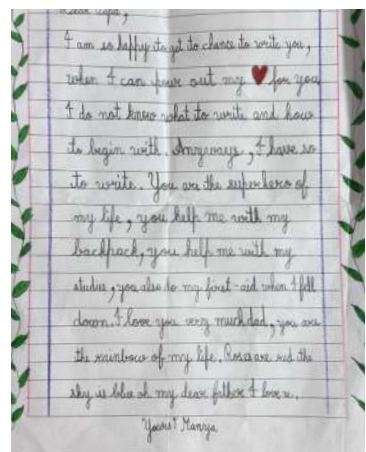 Dear Papa,
I am so happy to get to chance to write you,
when I can pour out my ❤ for you
I do not know what to write and how
to begin with. Anyways, I have so
to write. You are the superhero of
my life, you help me with my
backpack, you help me with my
studies, you also do my first-aid when I fell
down. I love you very much dad, you are
the rainbow of my life. Roses are red the
sky is blue oh my dear father I love u.
Yours Manya